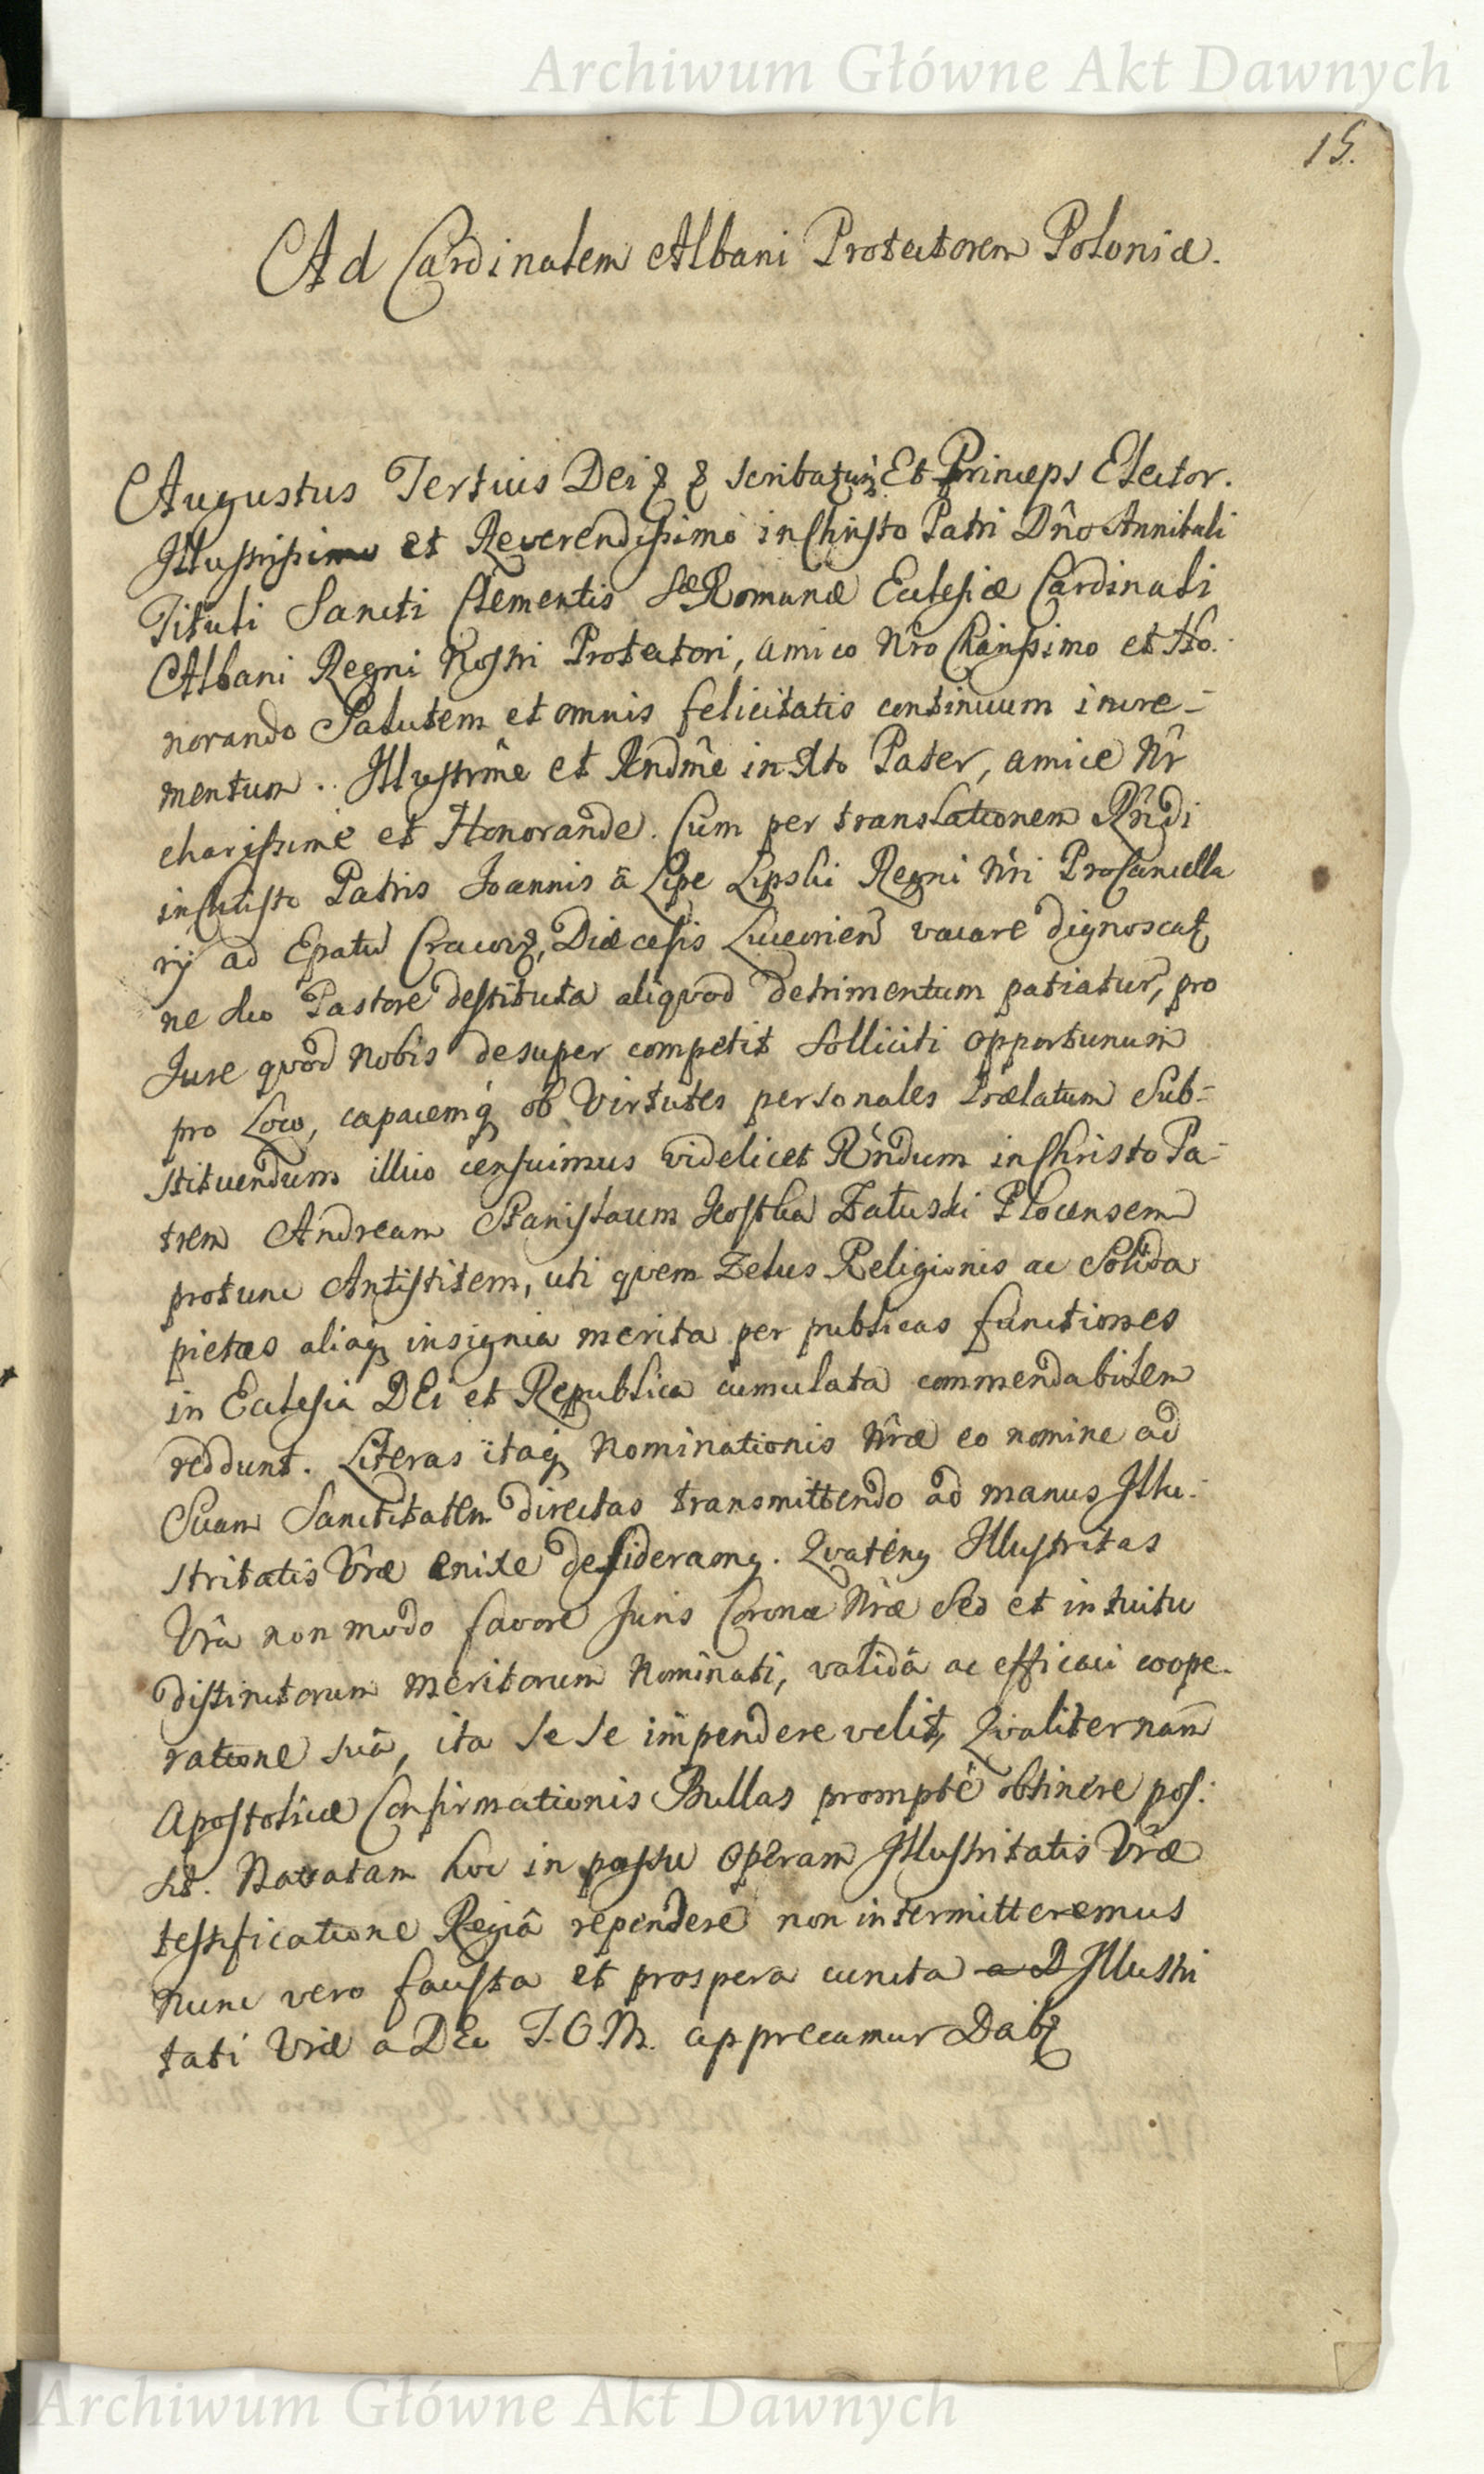 Archiwum Główne Akt Dawnych
15.
Ad Cardinalem Albani Protectorem Poloniæ.
Augustus Tertius Dei & & scribatur Et Princeps Elector.
Illustrissimo et Reverendissimo in Christo Patri Dn̂o Annibali
Tituli Sancti Clementis Sæ Romanæ Ecclesiæ Cardinali
Albani Regni Nostri Protectori, amico Nr̂o Charissimo et Ho-
norando Salutem et omnis felicitatis continuum incre-
mentum. Illustrm̂e et Rndm̂e in Xto Pater, amice Nr̂
charissime et Honorande. Cum per translationem Rn̂di
in Christo Patris Joannis â Lipe Lipski Regni Nr̂i Procancella
rij ad Epatũ Cracov, Diæcesis Luceorien̄ vacare dignoscat
ne suo Pastore destituta aliquod detrimentum patiatur, pro
Jure quod nobis desuper competit solliciti opportunum
pro Loco, capacemq ob Virtutes personales Prælatum Sub-
stituendum illuc censuimus videlicet Rn̂dum in Christo Pa-
trem Andream Stanislaum Kostka Załuski Plocensem
protunc Antistitem, uti quem Zelus Religionis ac Solida
pietas aliaq insignia merita per publicas functiones
in Ecclesia DEi et Republica cumulata commendabilem
reddunt. Literas itaq Nominationis Nr̂æ eo nomine ad
Suam Sanctitatem directas transmittendo ad manus Illu-
stritatis Vr̂æ enixe desideramq. Quatenq Illustritas
Vr̂a non modo favore Juris Coronæ Nr̂æ Sed et intuitu
distinctorum meritorum Nominati, validâ ac efficaci coope-
ratione suâ, ita se se impendere velit, Qualiter nam̄
Apostolicæ Confirmationis Bullas promptè obtinere pos-
sit. Navatam hoc in passu Operam Illustritatis Vr̂æ
testificatione Regiâ rependere non intermitteremus
nunc vero fausta et prospera cuncta a D Illustri
tati Vræ a DEo T.O.M. apprecamur Dab
Archiwum Główne Akt Dawnych